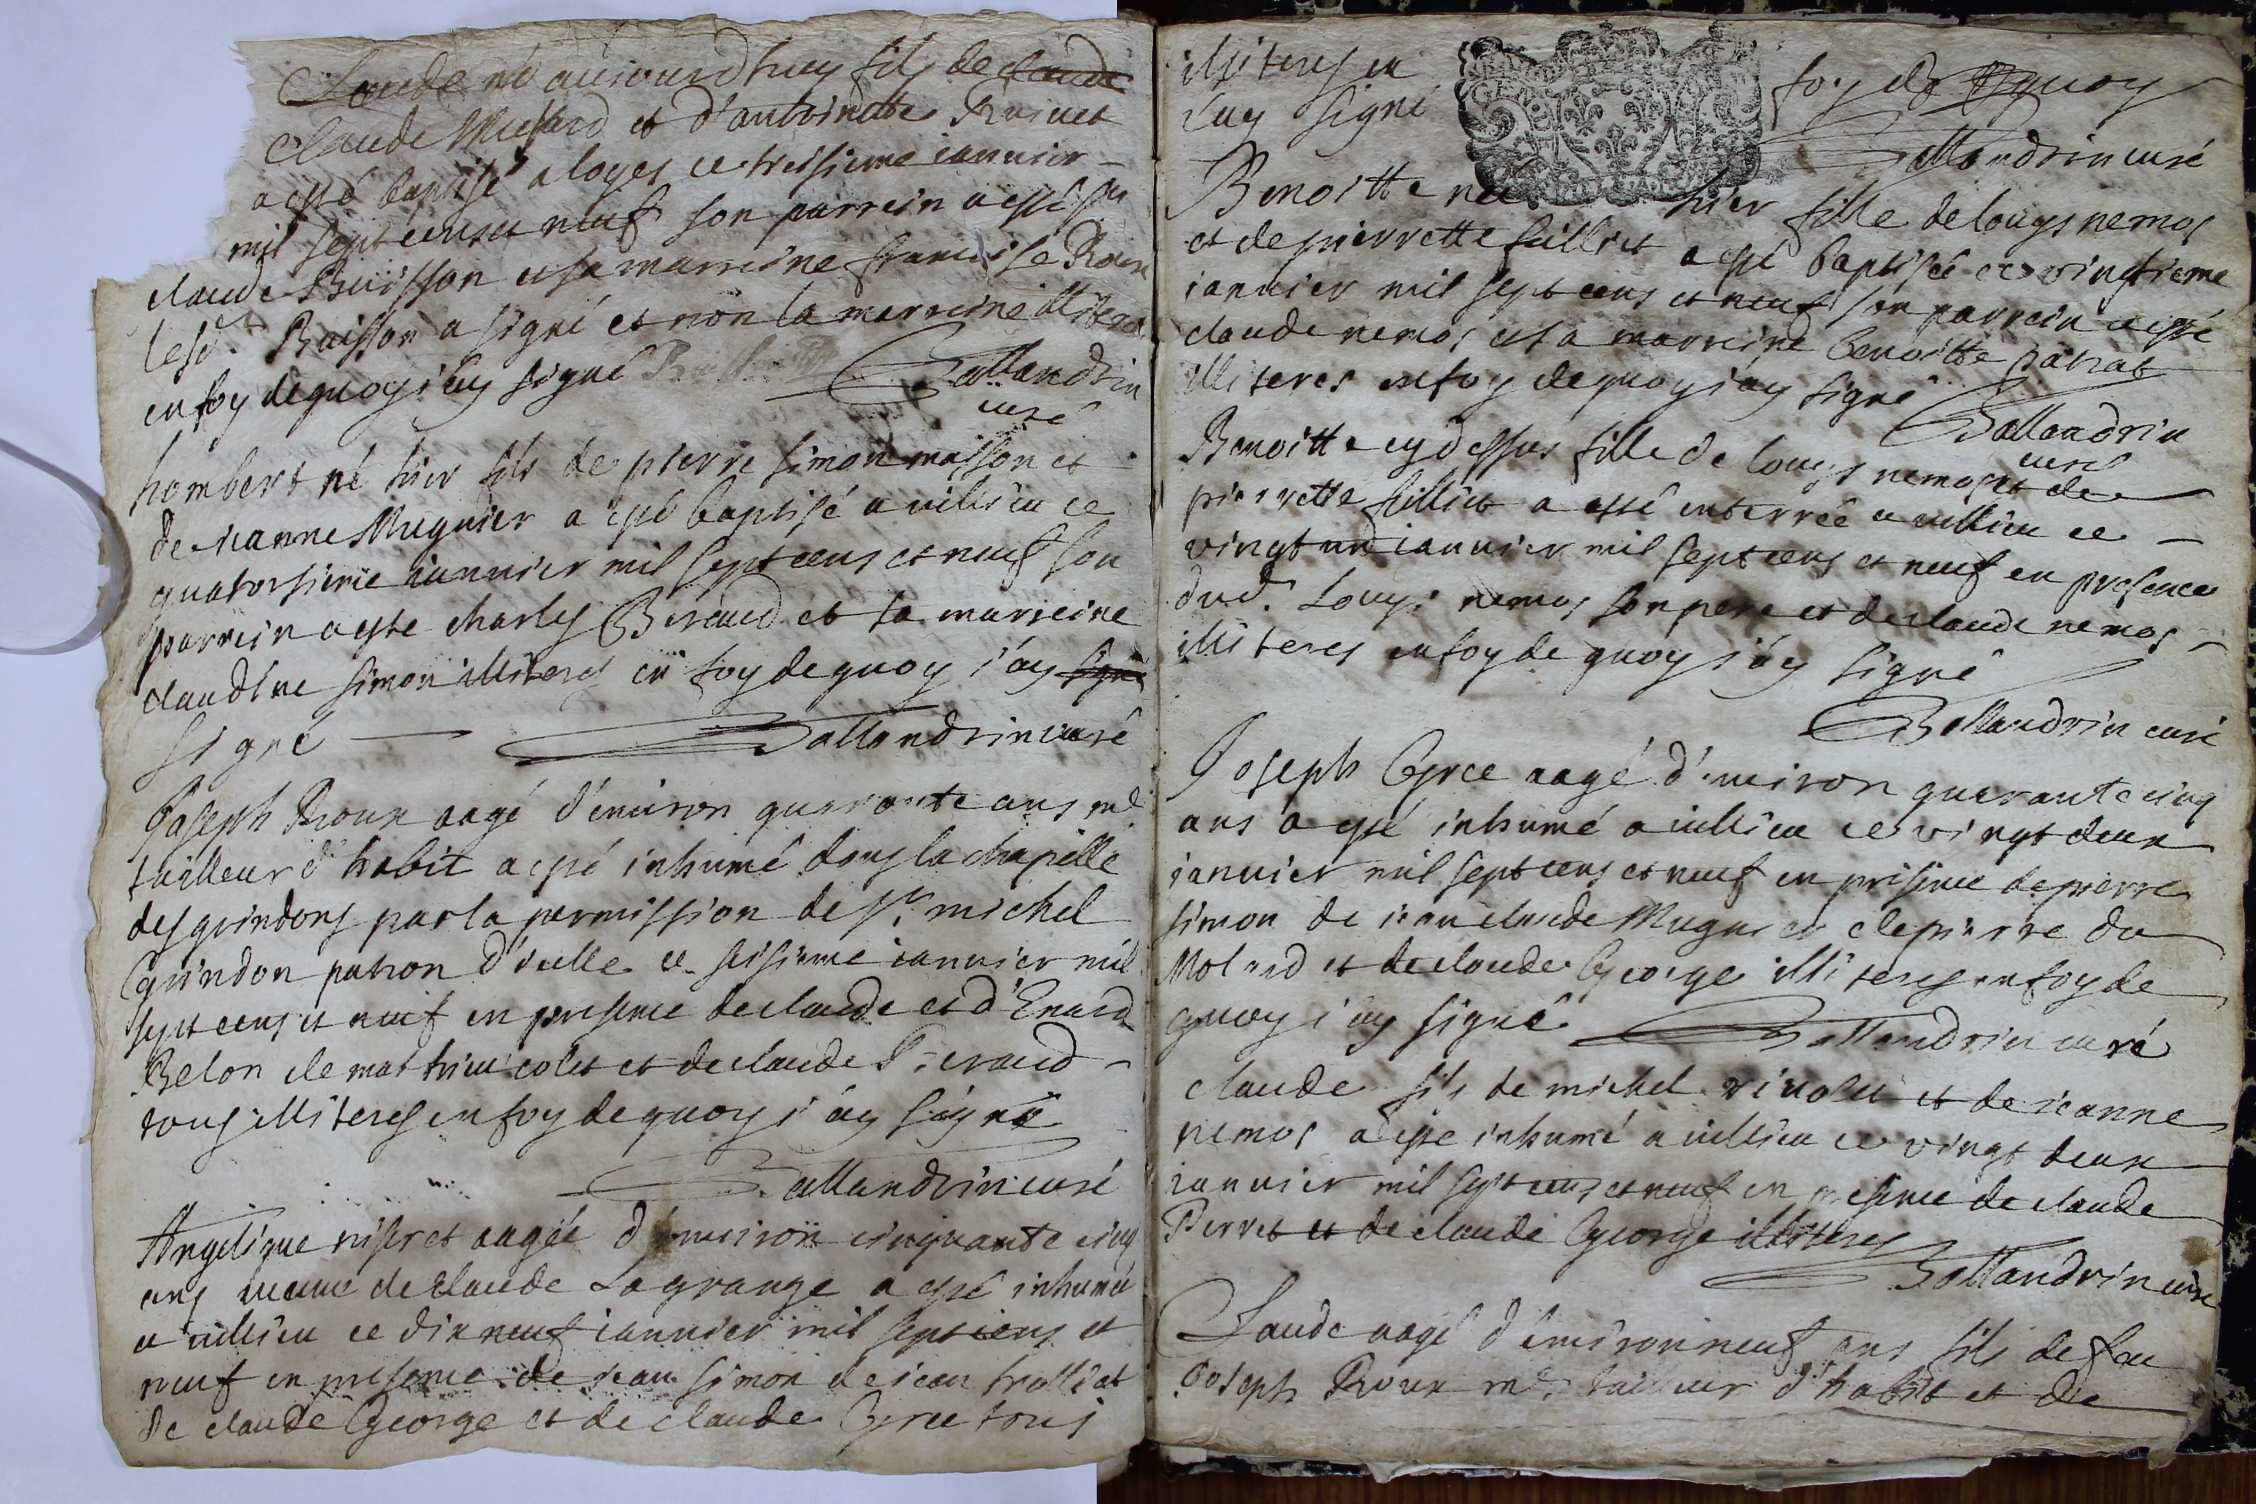 Claude né aujourd'huy fils de claude
claude Mussard et d'antoinette
a esté baptisé a loyes ce treisieme ianvier
mil sept cens et neuf son parrein a esté sr
claude Buisson et sa marreine francoise Roux
led. Buisson a signé et non la marreine illiterée
en foy de quoy i'ay signé Ballandrin
curé
hombert né hier fils de pierre simon masson et
de ieanne Mugnier a esté baptisé a villieu ce
quatorsieme ianvier mil sept cens et neuf son
parrein a esté charles Beraud et sa marreine
claudine simon illiteres en foy de quoy i'ay signé
signé Ballandrin curé
Joseph Roux aagé d'environ quarante ans me
tailleur d'habit a esté inhumé dans la chapelle
des grindons par la permission de sr michel
Grindon patron d'icelle ce seisieme ianvier mil
sept cens et neuf en presence de claude et d'Enard
Belon de mathieu colet et de claude Beraud
tous illiteres en foy de quoy i'ay signé
Ballandrin curé
Angelique aagée d'environ cinquante cinq
ans veuve de claude Lagrange a esté inhumée
a villieu ce dixneuf ianvier mil sept cens et
neuf en presence de iean simon de iean trolliat
de claude George et de claude Gyrce tous
illiteres en foy de quoy
i'ay signé
Ballandrin curé
Benoitte née hier fille de louys nemos
et de pierrette fillict a esté baptisée ce vingtieme
ianvier mil sept cens et neuf son parrein a esté
claude nemos et sa marreine benoitte patrat
illiteres en foy de quoy i'ay signé
Ballandrin
curé
Benoitte cy dessus fille de louys nemos et de
pierrette fillict a esté enterrée a villieu ce
vingt un ianvier mil sept cens et neuf en presence
dud. Louys nemos son pere et de claude nemos
illiteres en foy de quoy i'ay signé
Ballandrin curé
Joseph Gyrce aagé d'environ quarante cinq
ans a esté inhumé a villieu ce vingt deux
ianvier mil sept cens et neuf en presence de pierre
simon de iean claude Mugnier de pierre du
Molard et de claude George illiteres en foy de
quoy i'ay signé Ballandrin curé
claude fils de michel et de ieanne
nemos a esté inhumé a villieu ce vingt deux
ianvier mil sept cens et neuf en presence de claude
Perret et de claude George illiteres
Ballandrin curé
Claude aagé d'environ neuf ans fils de feu
Joseph Roux me tailleur d'habit et de